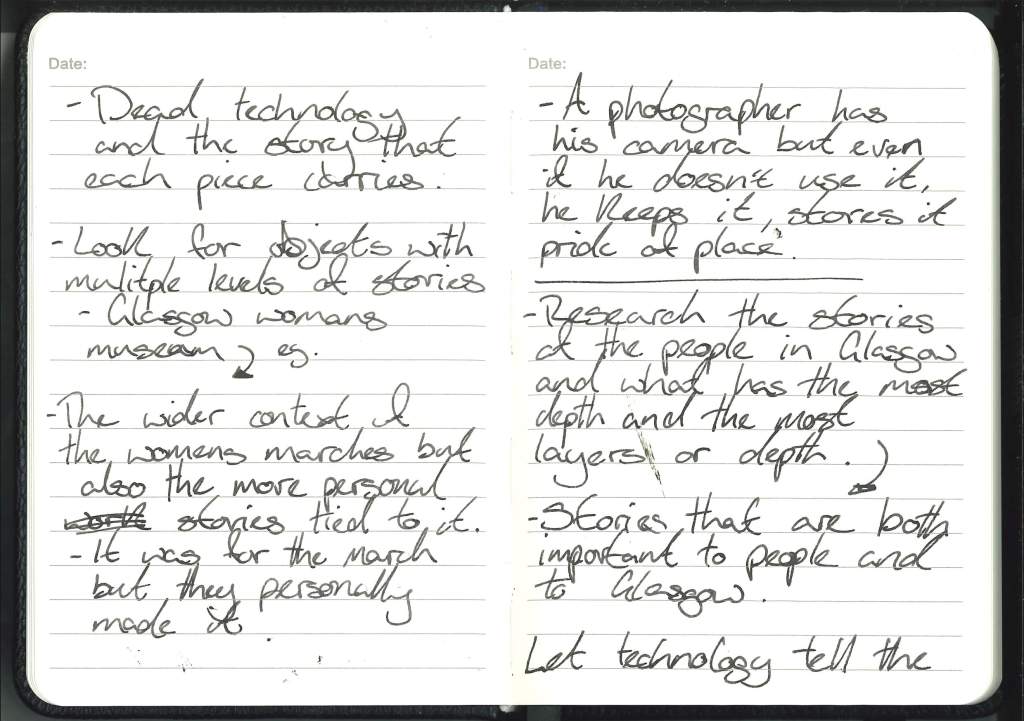 Date:
- Dead technology
and the story that
each piece carries.
- Look for objects with
mulitple levels of stories
- Glasgow womans
museam eg.
- The wider context of
the womens marches but
also the more personal
stories tied to it.
- It was for the march
but they personally
made it.
Date:
- A photographer has
his camera but even
if he doesn't use it,
he keeps it, stores it
pride of place.
- Research the stories
of the people in Glasgow
and what has the most
depth and the most
layers or depth.
- Stories that are both
important to people and
to Glasgow.
Let technology tell the